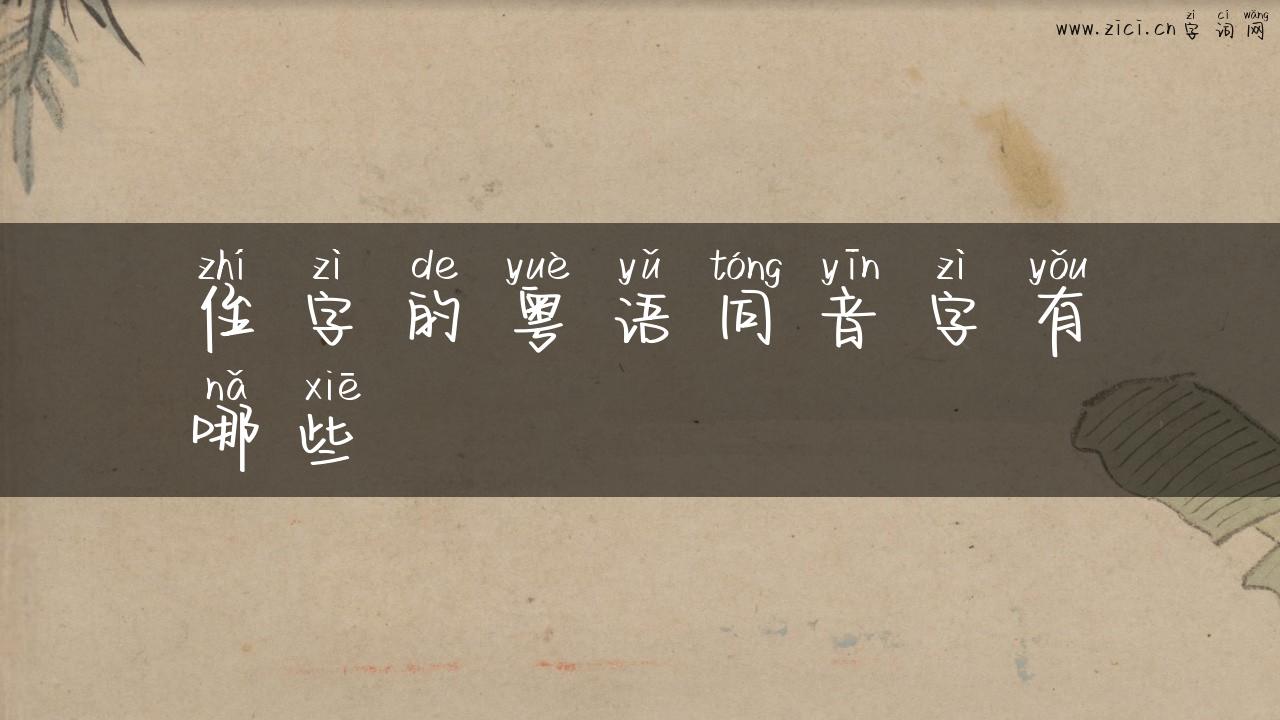 zì cí wǎng
www.zici.cn 字词网
zhí zì de yuè yǔ tóng yīn zì yǒu
侄字的粤语同音字有
nǎ xiē
哪些